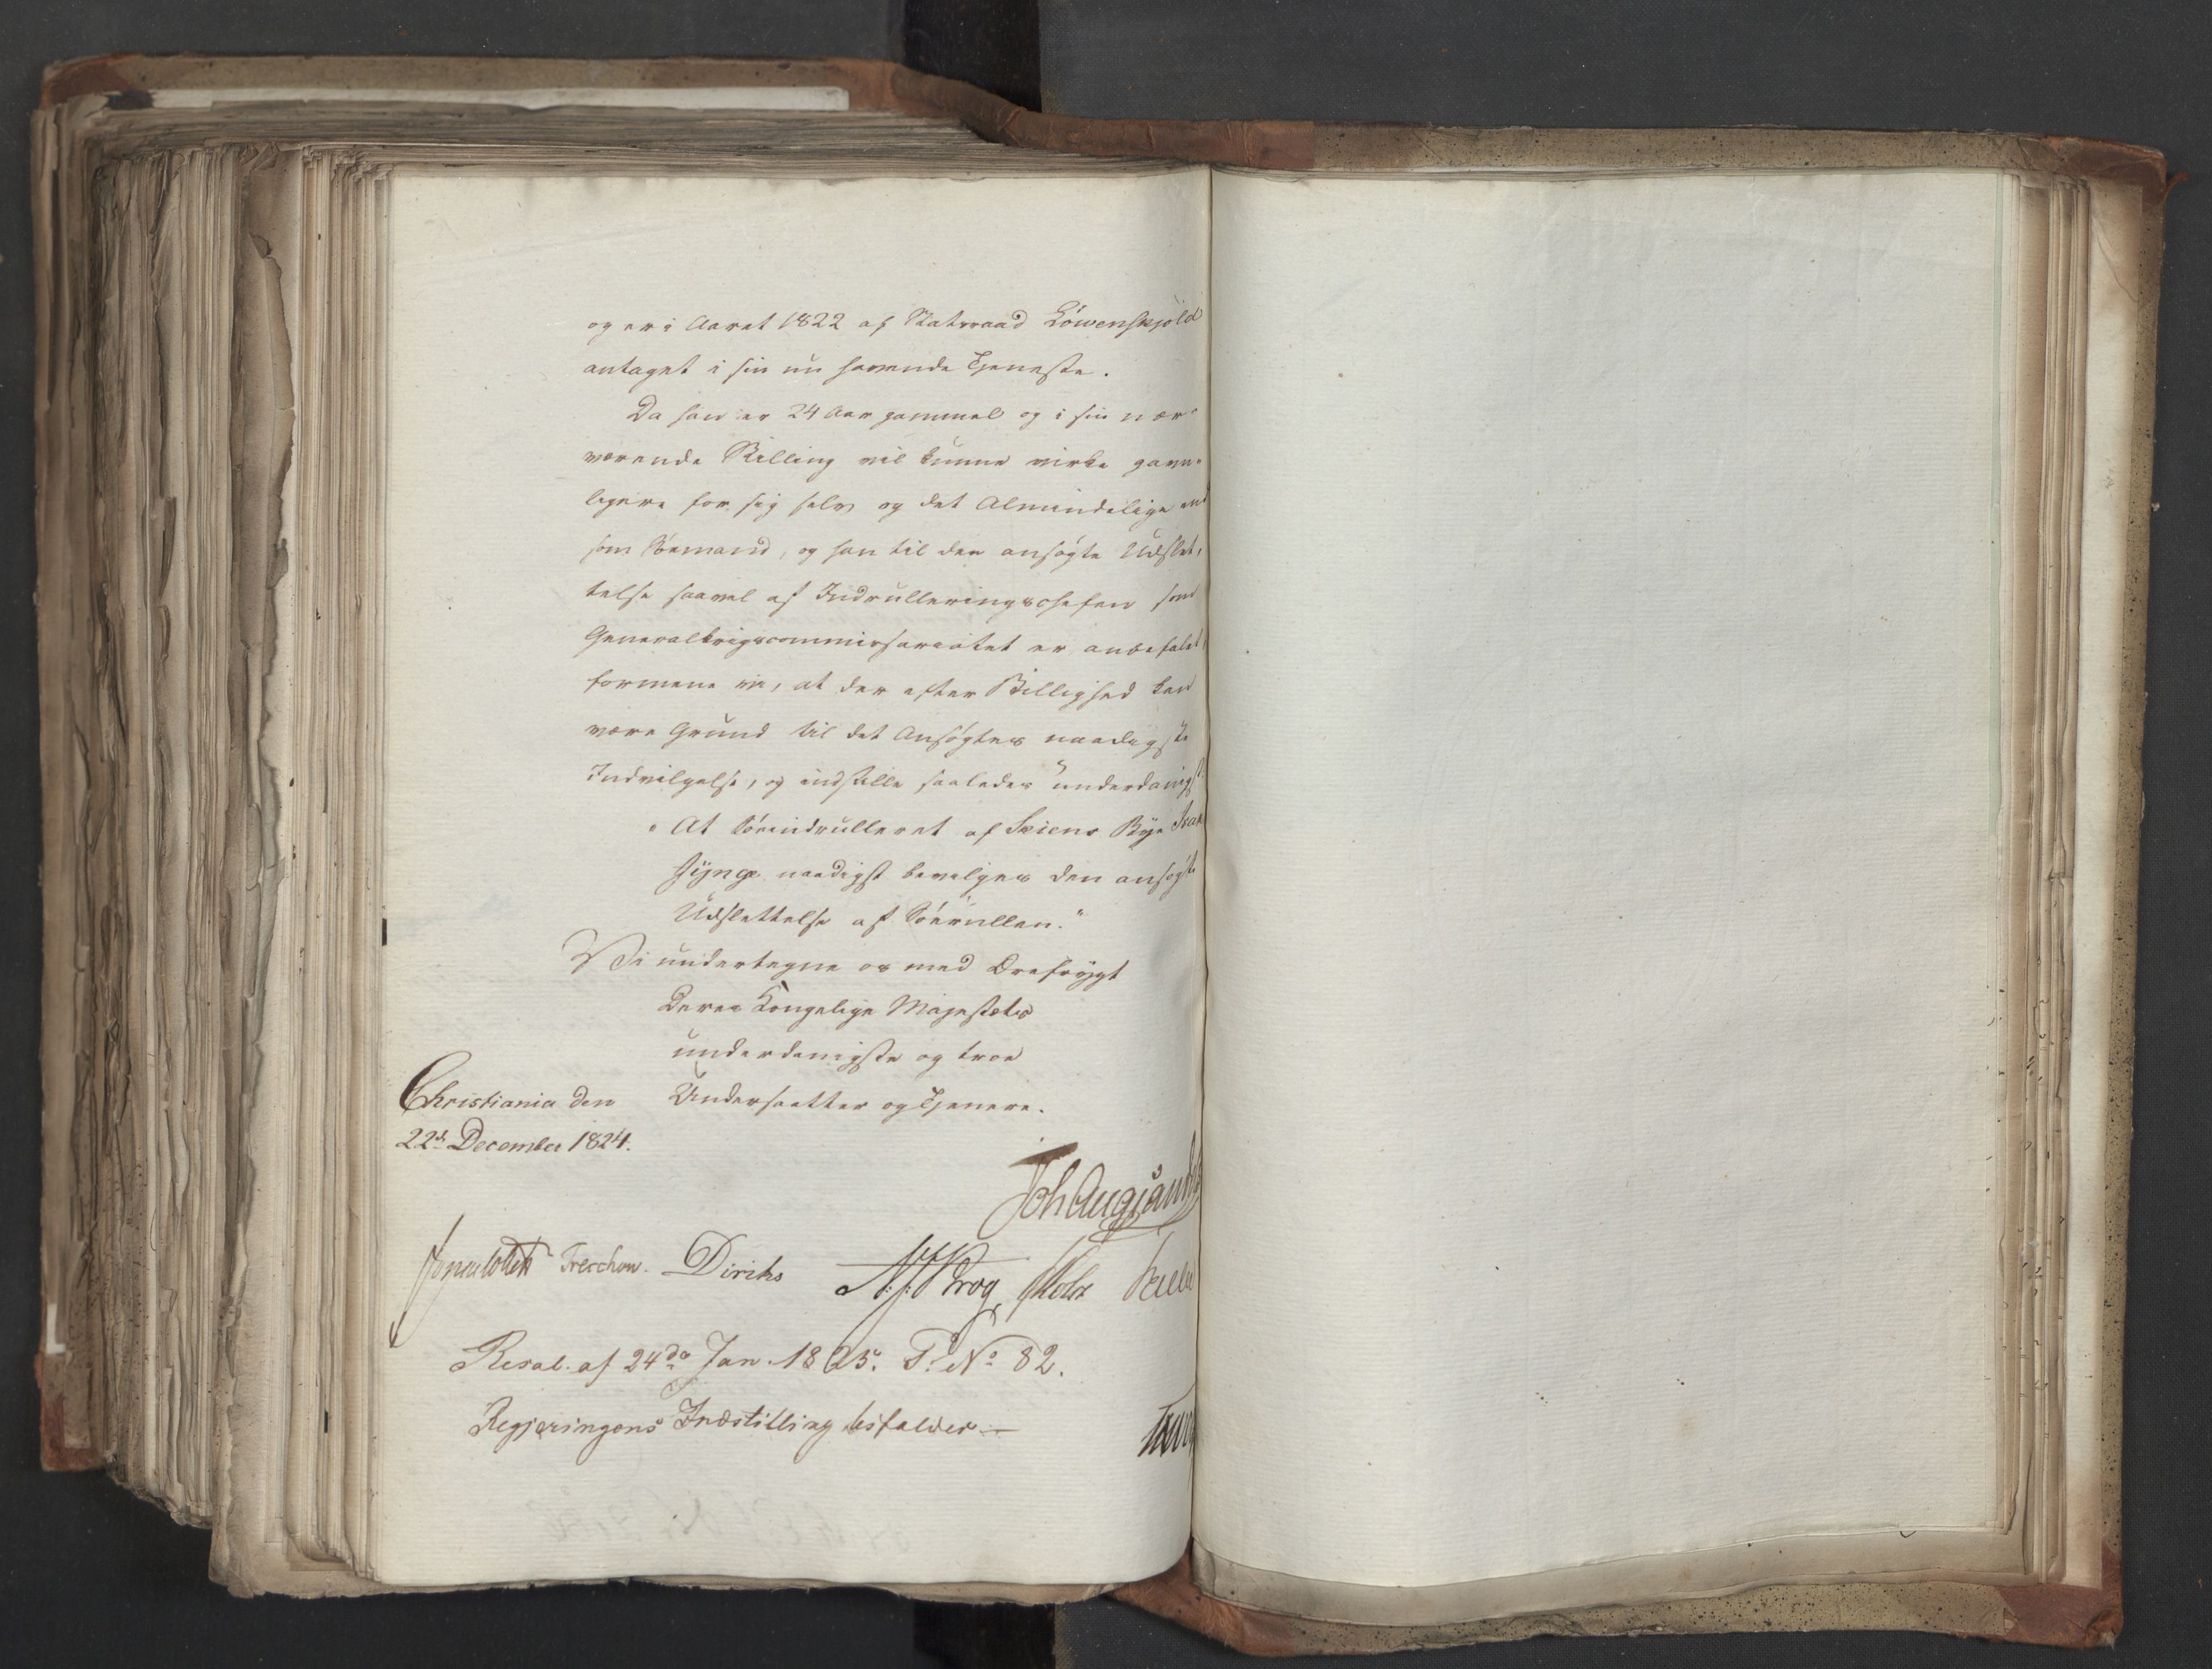 og er i Aaret 1822 af Statsraad Löwenskjöld
antaget i sin nu havende Tjeneste.
Da han er 24 Aar gammel og i sin nær-
værende Stilling vil kunne virke gavn-
ligere for sig selv og det Almindelige end
som Söemand, og han til den ansögte Udslet-
telse saavel af Indrulleringschefen som
Generalkrigscommissariatet er anbefalet,
formene vi, at der efter Billighed kan
være Grund til det Ansögtes naadigste
Indvilgelse, og indstille saaledes underdanigst:
"At Söeindrulleret af Skiens Bye Isak
naadigst bevilges den ansögte
Udslettelse af Söerullen."
Vi undertegne os med Ærefrygt
Deres Kongelige Majestæts
underdanigste og troe
Undersaatter og Tjenere.
Christiania den
22d December 1824.
Joh Aug Sandels
Jonas Collett Treschow. Diriks Krog Holst
Resol. af 24de Jan. 1825. P. No 82.
Regjeringens Indstilling bifaldes —